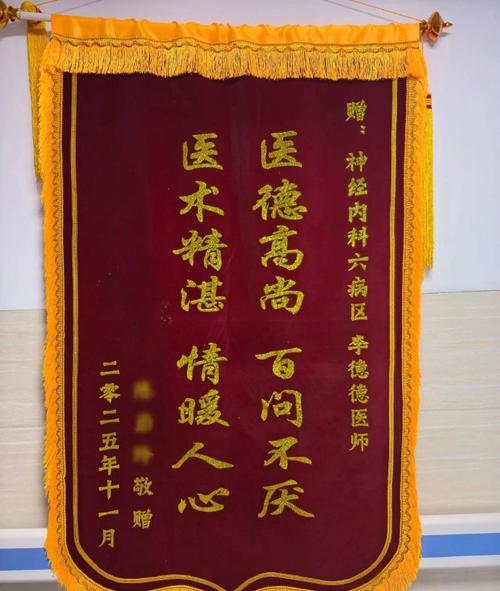 赠：神经内科六病区 李德德医师
医德高尚 百问不厌
医术精湛 情暖人心
敬赠
二零二五年十一月